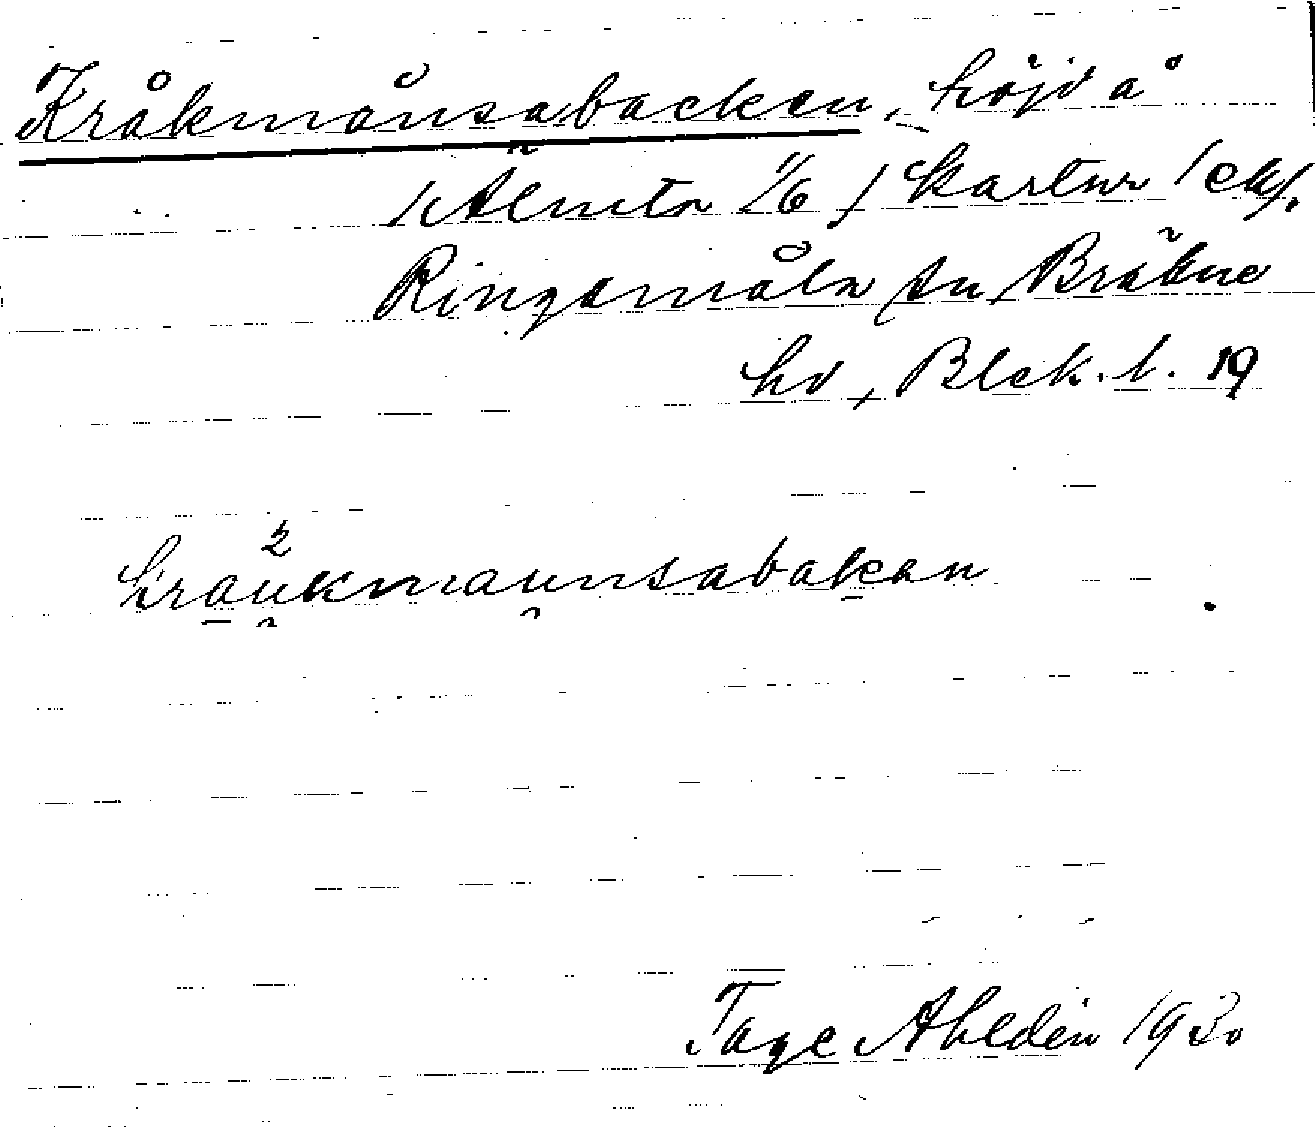 Kråkmånsabacken, höjd å
Älmeta 1/6
Ringamåla sn, Bräkne
hd, Blek. l. 19
kraukmaunsabakan
Tage Ahldén 1930